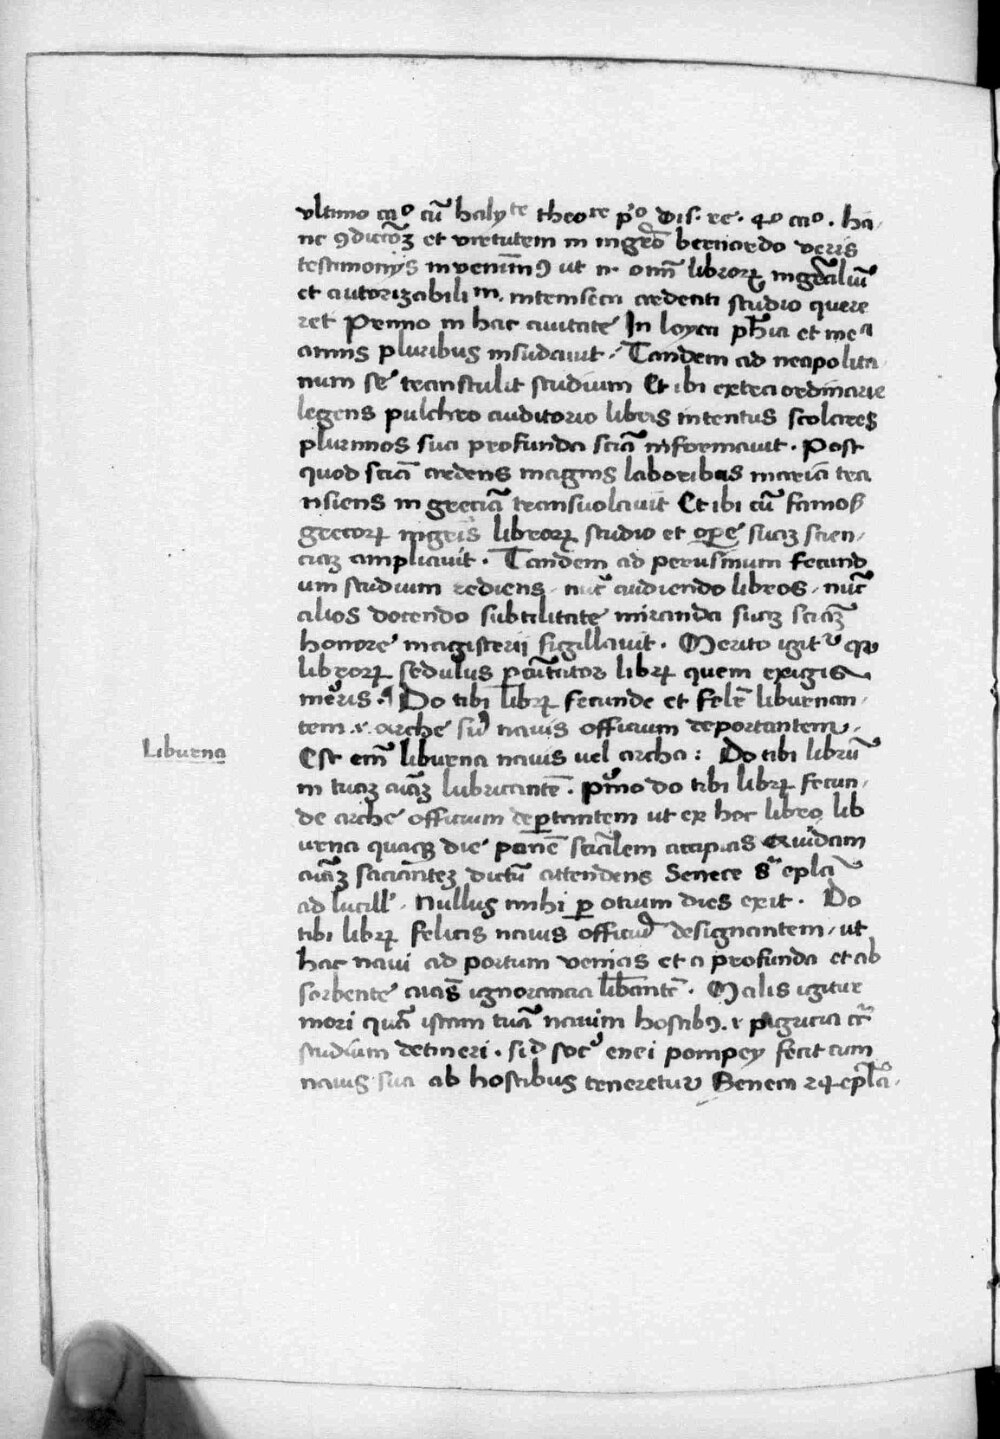 vltimo cao cũ halyte theore po dis. re. 4o cao. ha-
nc ꝯdictōꝫ et virtutem in mgrō bernardo veris
testimonijs invenimꝰ ut n. omĩ librorꝝ
et autorizabiliũ. intenseca ardenti studio quere
ret Primo in hac ciuitate In loyca phĩa et
annis pluribus insudauit. Tandem ad neapolita
num se transtulit studium Et ibi extraordinarie
legens pulchro auditorio libris intentus scolares
plurimos sua profunda sciã informauit. Post
quod sciã ardens magnis laboribus maria tra
nsiens in greciã transuolauit Et ibi cũ famos
grecorꝝ mgris librorꝝ studio et ope suaꝫ scien-
ciaꝫ ampliauit. Tandem ad perusinum fecund
um studium rediens. nũc audiendo libros. nũc
alios docendo subtilitate miranda suaꝫ sciãꝫ
honore magisterii sigillauit. Merito igitr
librorꝝ sedulus librꝝ quem exigis
meris. Do tibi librꝝ fecunde et felic liburnan-
tem .i. arche siue nauis officium deportantem.
Liburna
Est em̃ liburna nauis vel archa: Do tibi librũ
in tuaꝫ lubricantẽ. Pmo do tibi librꝝ fecun-
de arche officium deportantem ut ex hoc libro lib
urna quaqꝫ die panẽ sciãlem accipias Quidam
saciantẽ dictũ attendens Senece 8a epla
ad lucill. Nullus mihi ꝑ otium dies exit. Do
tibi librꝝ felicis nauis officiũ designantem, ut
hac naui ad portum venias et a profunda et ab
sorbente ignorancia libantẽ. Malis igitur
mori quã istam tuã nauim hostibꝰ. i. pigricia
studium detineri. sicud socꝰ enei pompey fecit cum
nauis sua ab hostibus teneretur Seneca 24 epla.